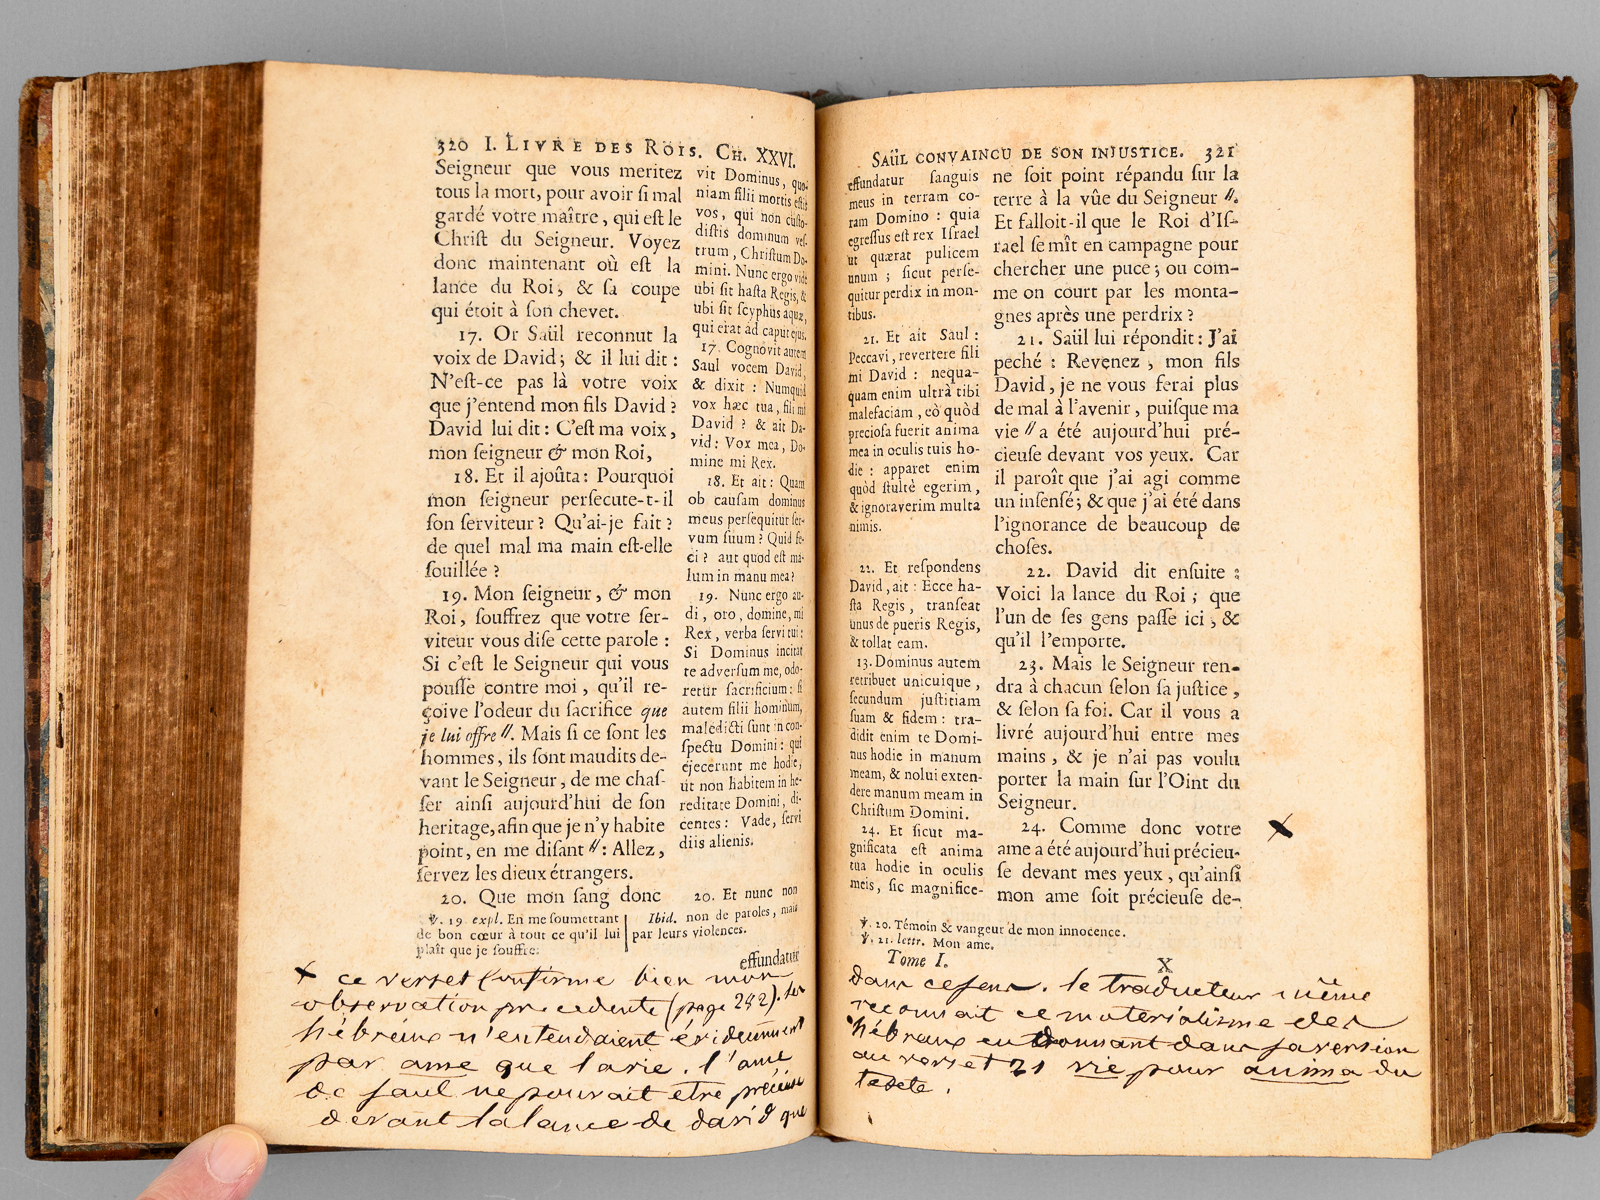 320 I. LIVRE DES ROIS. CH. XXVI.
Seigneur que vous meritez
tous la mort, pour avoir ſi mal
gardé votre maître, qui eſt le
Chriſt du Seigneur. Voyez
donc maintenant où eſt la
lance du Roi, & ſa coupe
qui étoit à ſon chevet.
17. Or Saül reconnut la
voix de David; & il lui dit :
N'eſt-ce pas là votre voix
que j'entend mon fils David ?
David lui dit : C'eſt ma voix,
mon ſeigneur & mon Roi,
18. Et il ajoûta : Pourquoi
mon ſeigneur perſecute-t-il
ſon ſerviteur ? Qu'ai-je fait ?
de quel mal ma main eſt-elle
ſouillée ?
19. Mon ſeigneur, & mon
Roi, ſouffrez que votre ſer-
viteur vous diſe cette parole :
Si c'eſt le Seigneur qui vous
pouſſe contre moi, qu'il re-
çoive l'odeur du ſacrifice que
je lui offre //. Mais ſi ce ſont les
hommes, ils ſont maudits de-
vant le Seigneur, de me chaſ-
ſer ainſi aujourd'hui de ſon
heritage, afin que je n'y habite
point, en me diſant // : Allez,
ſervez les dieux étrangers.
20. Que mon ſang donc
vit Dominus, quo-
niam filii mortis eſtis
vos, qui non cuſto-
diſtis dominum veſ-
trum, Chriſtum Do-
mini. Nunc ergo vide
ubi ſit haſta Regis, &
ubi ſit ſcyphus aquæ,
qui erat ad caput ejus.
17. Cognovit autem
Saul vocem David,
& dixit : Numquid
vox hæc tua, fili mi
David ? & ait Da-
vid : Vox mea, Do-
mine mi Rex.
18. Et ait : Quam
ob cauſam dominus
meus perſequitur ſer-
vum ſuum ? Quid fe-
ci ? aut quod eſt ma-
lum in manu mea ?
19. Nunc ergo au-
di, oro, domine, mi
Rex, verba ſervi tui :
Si Dominus incitat
te adverſum me, odo-
retur ſacrificium : ſi
autem filii hominum,
maledicti ſunt in con-
ſpectu Domini : qui
ejecerunt me hodie,
ut non habitem in he-
reditate Domini, di-
centes : Vade, ſervi
diis alienis.
20. Et nunc non
℣. 19 expl. En me ſoumettant
de bon cœur à tout ce qu'il lui
plaît que je ſouffre.
Ibid. non de paroles, mais
par leurs violences.
effundatur
x ce verset confirme bien mon
observation precedente (page 242). les
hébreux n'entendaient évidemment
par ame que la vie. l'ame
de saul ne pouvait etre précieuse
devant la lance de david que
SAÜL CONVAINCU DE SON INJUSTICE. 321
effundatur ſanguis
meus in terram co-
ram Domino : quia
egreſſus eſt rex Iſrael
ut quærat pulicem
unum ; ſicut perſe-
quitur perdix in mon-
tibus.
21. Et ait Saul :
Peccavi, revertere fili
mi David : nequa-
quam enim ultrà tibi
malefaciam, eò quòd
precioſa fuerit anima
mea in oculis tuis ho-
die : apparet enim
quòd ſtultè egerim,
& ignoraverim multa
nimis.
22. Et reſpondens
David, ait : Ecce ha-
ſta Regis, tranſeat
unus de pueris Regis,
& tollat eam.
13. Dominus autem
retribuet unicuique,
ſecundum juſtitiam
ſuam & fidem : tra-
didit enim te Domi-
nus hodie in manum
meam, & nolui exten-
dere manum meam in
Chriſtum Domini.
24. Et ſicut ma-
gnificata eſt anima
tua hodie in oculis
meis, ſic magnifice-
ne ſoit point répandu ſur la
terre à la vûe du Seigneur //.
Et falloit-il que le Roi d'Iſ-
rael ſe mît en campagne pour
chercher une puce ; ou com-
me on court par les monta-
gnes après une perdrix ?
21. Saül lui répondit : J'ai
peché : Revenez, mon fils
David, je ne vous ferai plus
de mal à l'avenir, puiſque ma
vie // a été aujourd'hui pré-
cieuſe devant vos yeux. Car
il paroît que j'ai agi comme
un inſenſé ; & que j'ai été dans
l'ignorance de beaucoup de
choſes.
22. David dit enſuite :
Voici la lance du Roi ; que
l'un de ſes gens paſſe ici, &
qu'il l'emporte.
23. Mais le Seigneur ren-
dra à chacun ſelon ſa juſtice,
& ſelon ſa foi. Car il vous a
livré aujourd'hui entre mes
mains, & je n'ai pas voulu
porter la main ſur l'Oint du
Seigneur.
24. Comme donc votre x
ame a été aujourd'hui précieu-
ſe devant mes yeux, qu'ainſi
mon ame ſoit précieuſe de-
℣. 20. Témoin & vangeur de mon innocence.
℣. 21. lettr. Mon ame.
Tome I. X
dans ce sens. le traducteur même
reconnait ce materialisme des
hébreux en donnant dans sa version
au verset 21 vie pour anima du
texte.